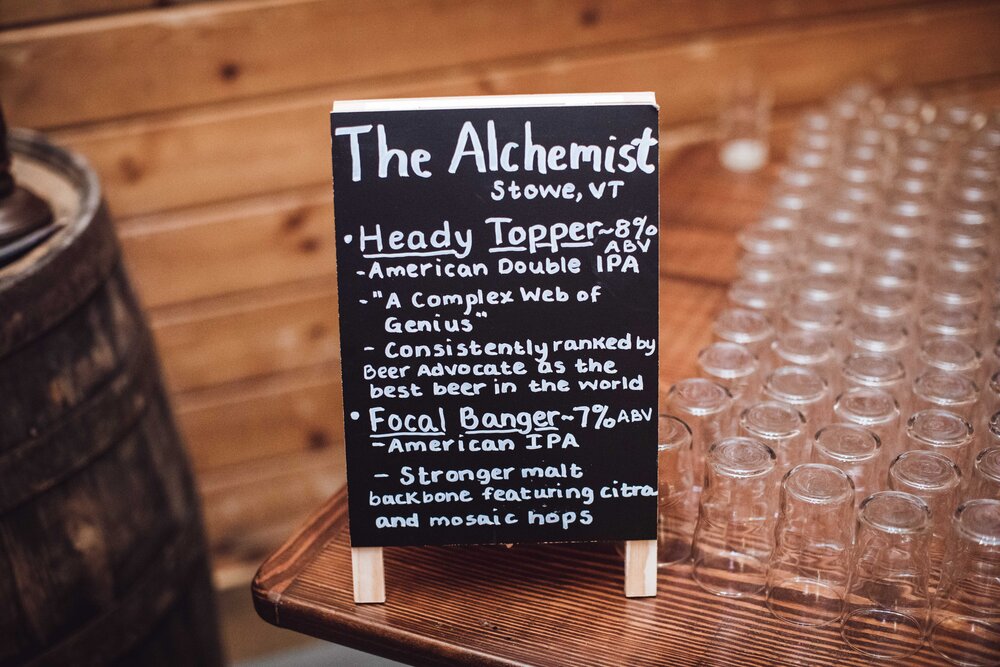 The Alchemist
Stowe, VT
• Heady Topper ~8%
ABV
- American Double IPA
- "A Complex Web of
Genius"
- Consistently ranked by
Beer Advocate as the
best beer in the world
• Focal Banger ~7% ABV
- American IPA
- Stronger malt
backbone featuring citra
and mosaic hops